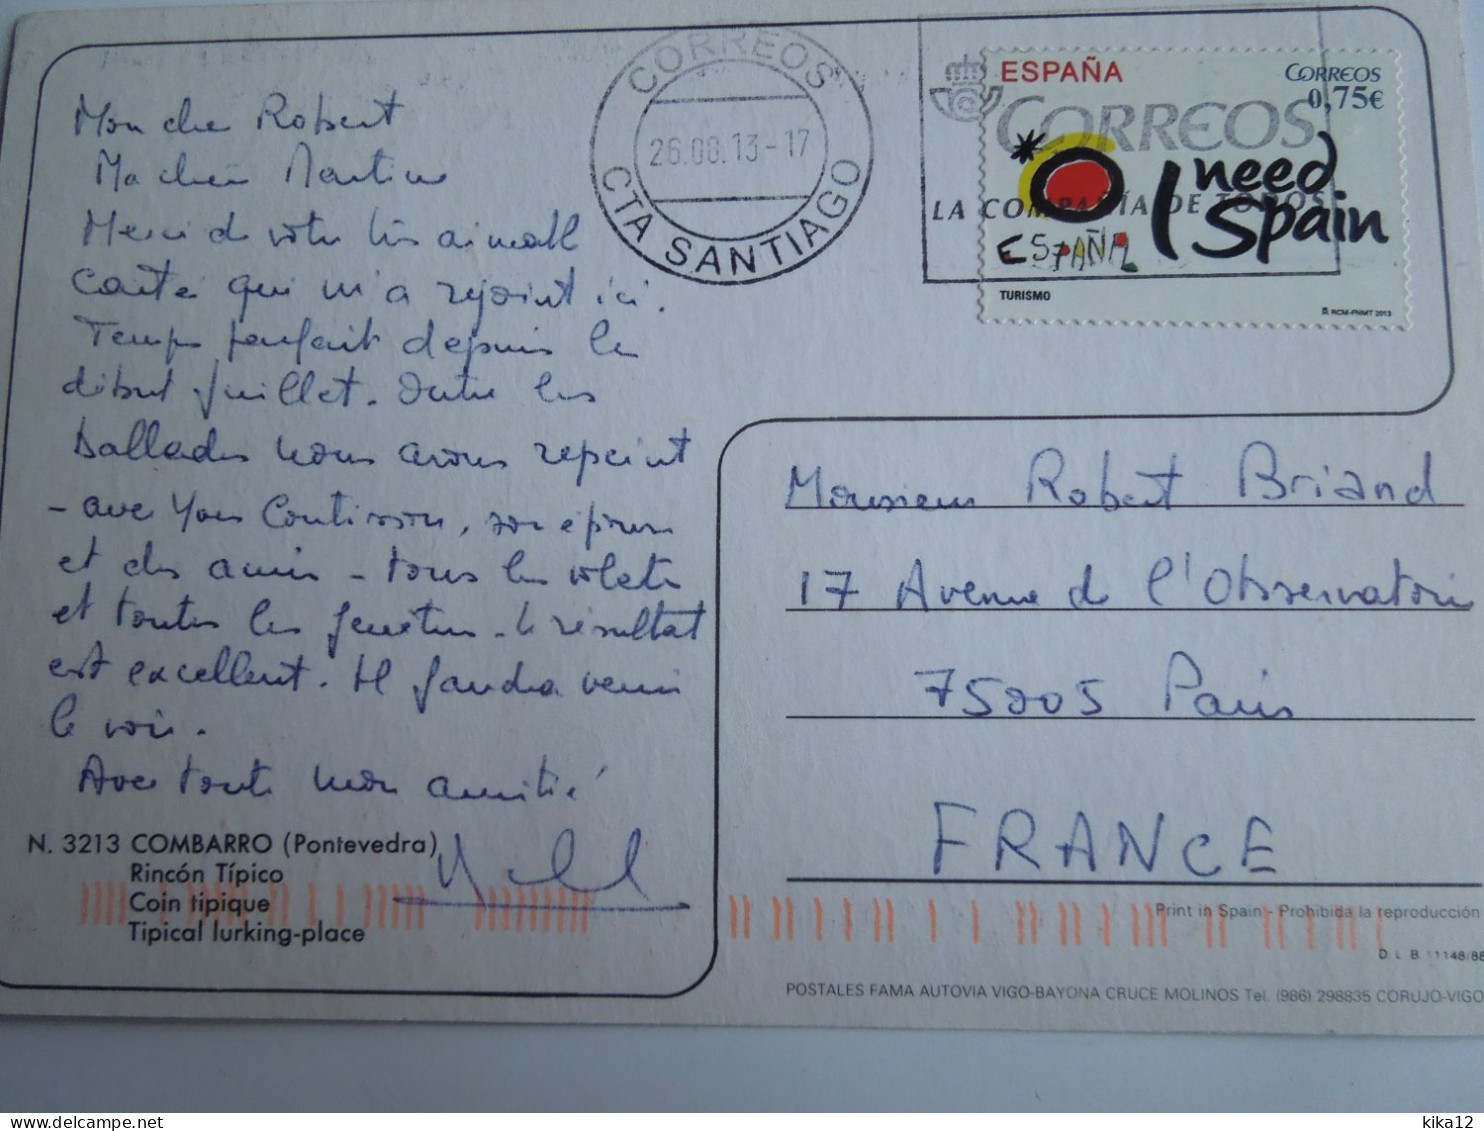 Mon cher Robert
Ma chère Martine
Merci de votre très aimable
carte qui m'a rejoint ici.
Temps parfait depuis le
début juillet. Outre les
ballades nous avons repeint
- avec son épouse
et des amis - tous les volets
et toutes les fenêtres. Le résultat
est excellent. Il faudra venir
le voir.
Avec toute mon amitié
N. 3213 COMBARRO (Pontevedra)
Rincón Típico
Coin tipique
Tipical lurking-place
CORREOS
26.08.13-17
CTA SANTIAGO
ESPAÑA
CORREOS
0,75€
CORREOS
LA COMPAÑÍA DE TODOS
I need
Spain
ESPAÑA
TURISMO
RCM-FNMT 2013
Monsieur Robert Briand
17 Avenue de l'Observatoire
75005 Paris
FRANCE
Print in Spain - Prohibida la reproducción
D. L. B. 11148/88
POSTALES FAMA AUTOVIA VIGO-BAYONA CRUCE MOLINOS Tel. (986) 298835 CORUJO-VIGO
delcampe.net
kika12